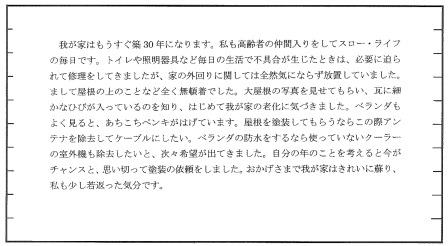 我が家はもうすぐ築30年になります。私も高齢者の仲間入りをしてスロー・ライフ
の毎日です。トイレや照明器具など毎日の生活で不具合が生じたときは、必要に迫ら
れて修理をしてきましたが、家の外回りに関しては全然気にならず放置していました。
まして屋根の上のことなど全く無頓着でした。大屋根の写真を見せてもらい、瓦に細
かなひびが入っているのを知り、はじめて我が家の老化に気づきました。ベランダも
よく見ると、あちこちペンキがはげています。屋根を塗装してもらうならこの際アン
テナを除去してケーブルにしたい。ベランダの防水をするなら使っていないクーラー
の室外機も除去したいと、次々希望が出てきました。自分の年のことを考えると今が
チャンスと、思い切って塗装の依頼をしました。おかげさまで我が家はきれいに蘇り、
私も少し若返った気分です。